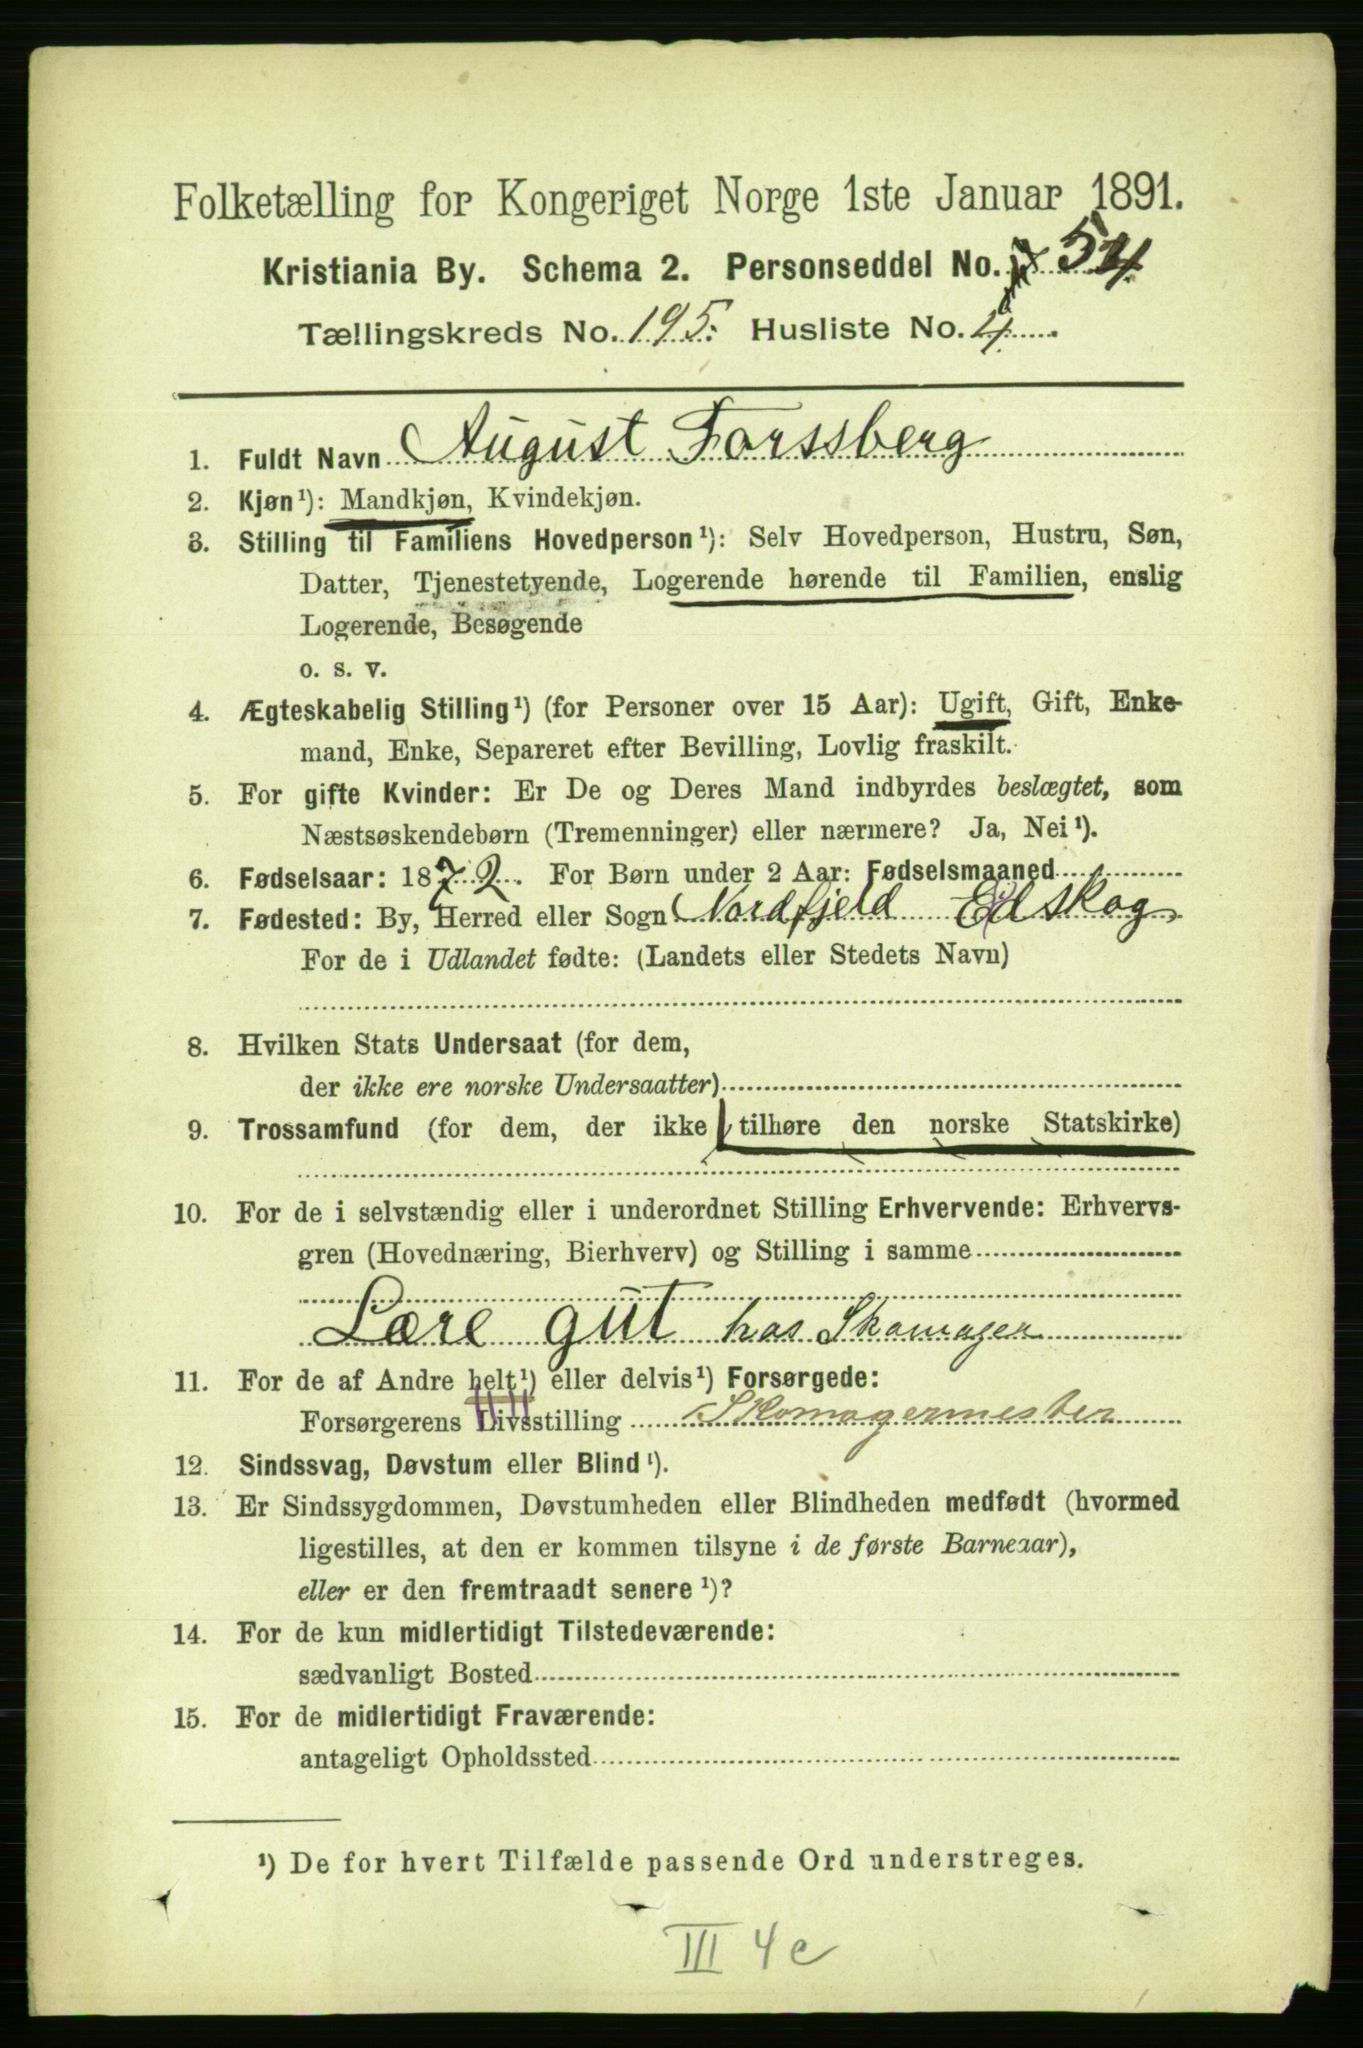 Folketælling for Kongeriget Norge 1ste Januar 1891.
Kristiania By. Schema 2. Personseddel No. 54
Tællingskreds No. 195. Husliste No. 4
1. Fuldt Navn August Forssberg
2. Kjøn¹): Mandkjøn, Kvindekjøn.
3. Stilling til Familiens Hovedperson¹): Selv Hovedperson, Hustru, Søn,
Datter, Tjenestetyende, Logerende hørende til Familien, enslig
Logerende, Besøgende
o. s. v.
4. Ægteskabelig Stilling¹) (for Personer over 15 Aar): Ugift, Gift, Enke-
mand, Enke, Separeret efter Bevilling, Lovlig fraskilt.
5. For gifte Kvinder: Er De og Deres Mand indbyrdes beslægtet, som
Næstsøskendebørn (Tremenninger) eller nærmere? Ja, Nei¹).
6. Fødselsaar: 1872. For Børn under 2 Aar: Fødselsmaaned
7. Fødested: By, Herred eller Sogn Nordfjeld Edskog
For de i Udlandet fødte: (Landets eller Stedets Navn)
8. Hvilken Stats Undersaat (for dem,
der ikke ere norske Undersaatter)
9. Trossamfund (for dem, der ikke tilhøre den norske Statskirke)
10. For de i selvstændig eller i underordnet Stilling Erhvervende: Erhvervs-
gren (Hovednæring, Bierhverv) og Stilling i samme
Lære gut hos Skomager
11. For de af Andre helt¹) eller delvis¹) Forsørgede:
Forsørgerens Livsstilling Skomagermester
12. Sindssvag, Døvstum eller Blind¹).
13. Er Sindssygdommen, Døvstumheden eller Blindheden medfødt (hvormed
ligestilles, at den er kommen tilsyne i de første Barneaar),
eller er den fremtraadt senere¹)?
14. For de kun midlertidigt Tilstedeværende:
sædvanligt Bosted
15. For de midlertidigt Fraværende:
antageligt Opholdssted
¹) De for hvert Tilfælde passende Ord understreges.
III 4c